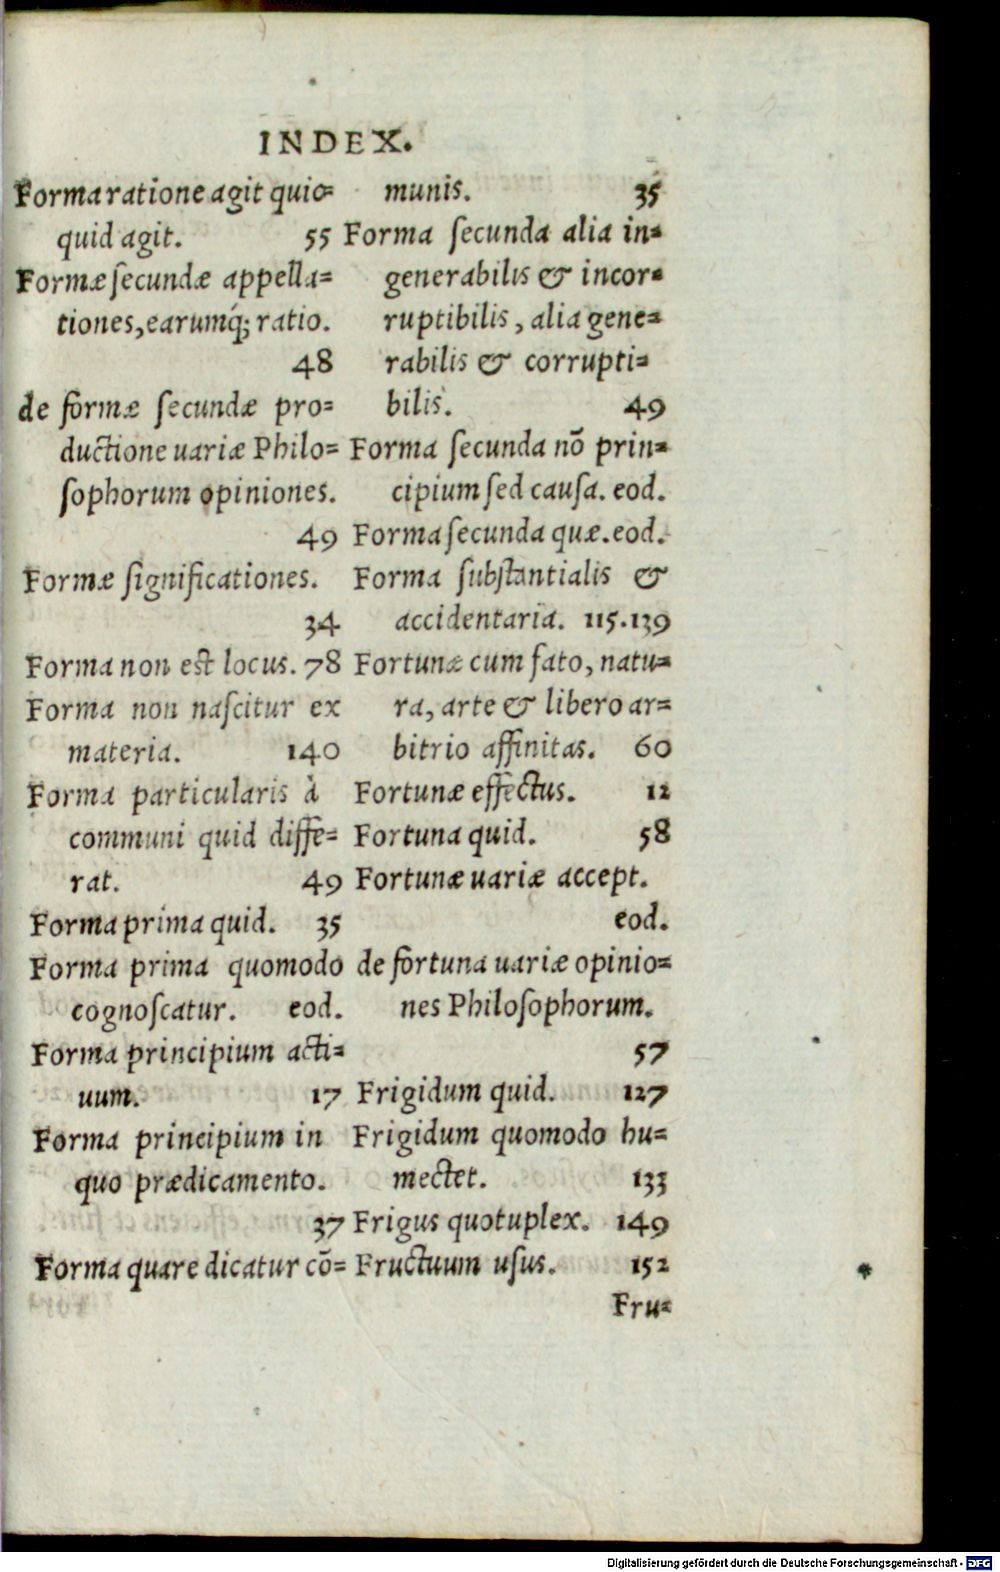 INDEX.
Forma ratione agit quic=
quid agit. 55
Formæ ſecundæ appella=
tiones, earumq́; ratio.
48
de formæ ſecundæ pro=
ductione uariæ Philo=
ſophorum opiniones.
49
Formæ ſignificationes.
34
Forma non est locus. 78
Forma non naſcitur ex
materia. 140
Forma particularis à
communi quid diffe=
rat. 49
Forma prima quid. 35
Forma prima quomodo
cognoſcatur. eod.
Forma principium acti=
uum. 17
Forma principium in
quo prædicamento.
37
Forma quare dicatur cō=
munis. 35
Forma ſecunda alia in=
generabilis & incor=
ruptibilis, alia gene=
rabilis & corrupti=
bilis. 49
Forma ſecunda nō prin=
cipium ſed cauſa. eod.
Forma ſecunda quæ. eod.
Forma ſubſtantialis &
accidentaria. 115.139
Fortunæ cum fato, natu=
ra, arte & libero ar=
bitrio affinitas. 60
Fortunæ effectus. 12
Fortuna quid. 58
Fortunæ uariæ accept.
eod.
de fortuna uariæ opinio=
nes Philoſophorum.
57
Frigidum quid. 127
Frigidum quomodo hu=
mectet. 133
Frigus quotuplex. 149
Fructuum uſus. 152
Fru=
Digitalisierung gefördert durch die Deutsche Forschungsgemeinschaft - DFG